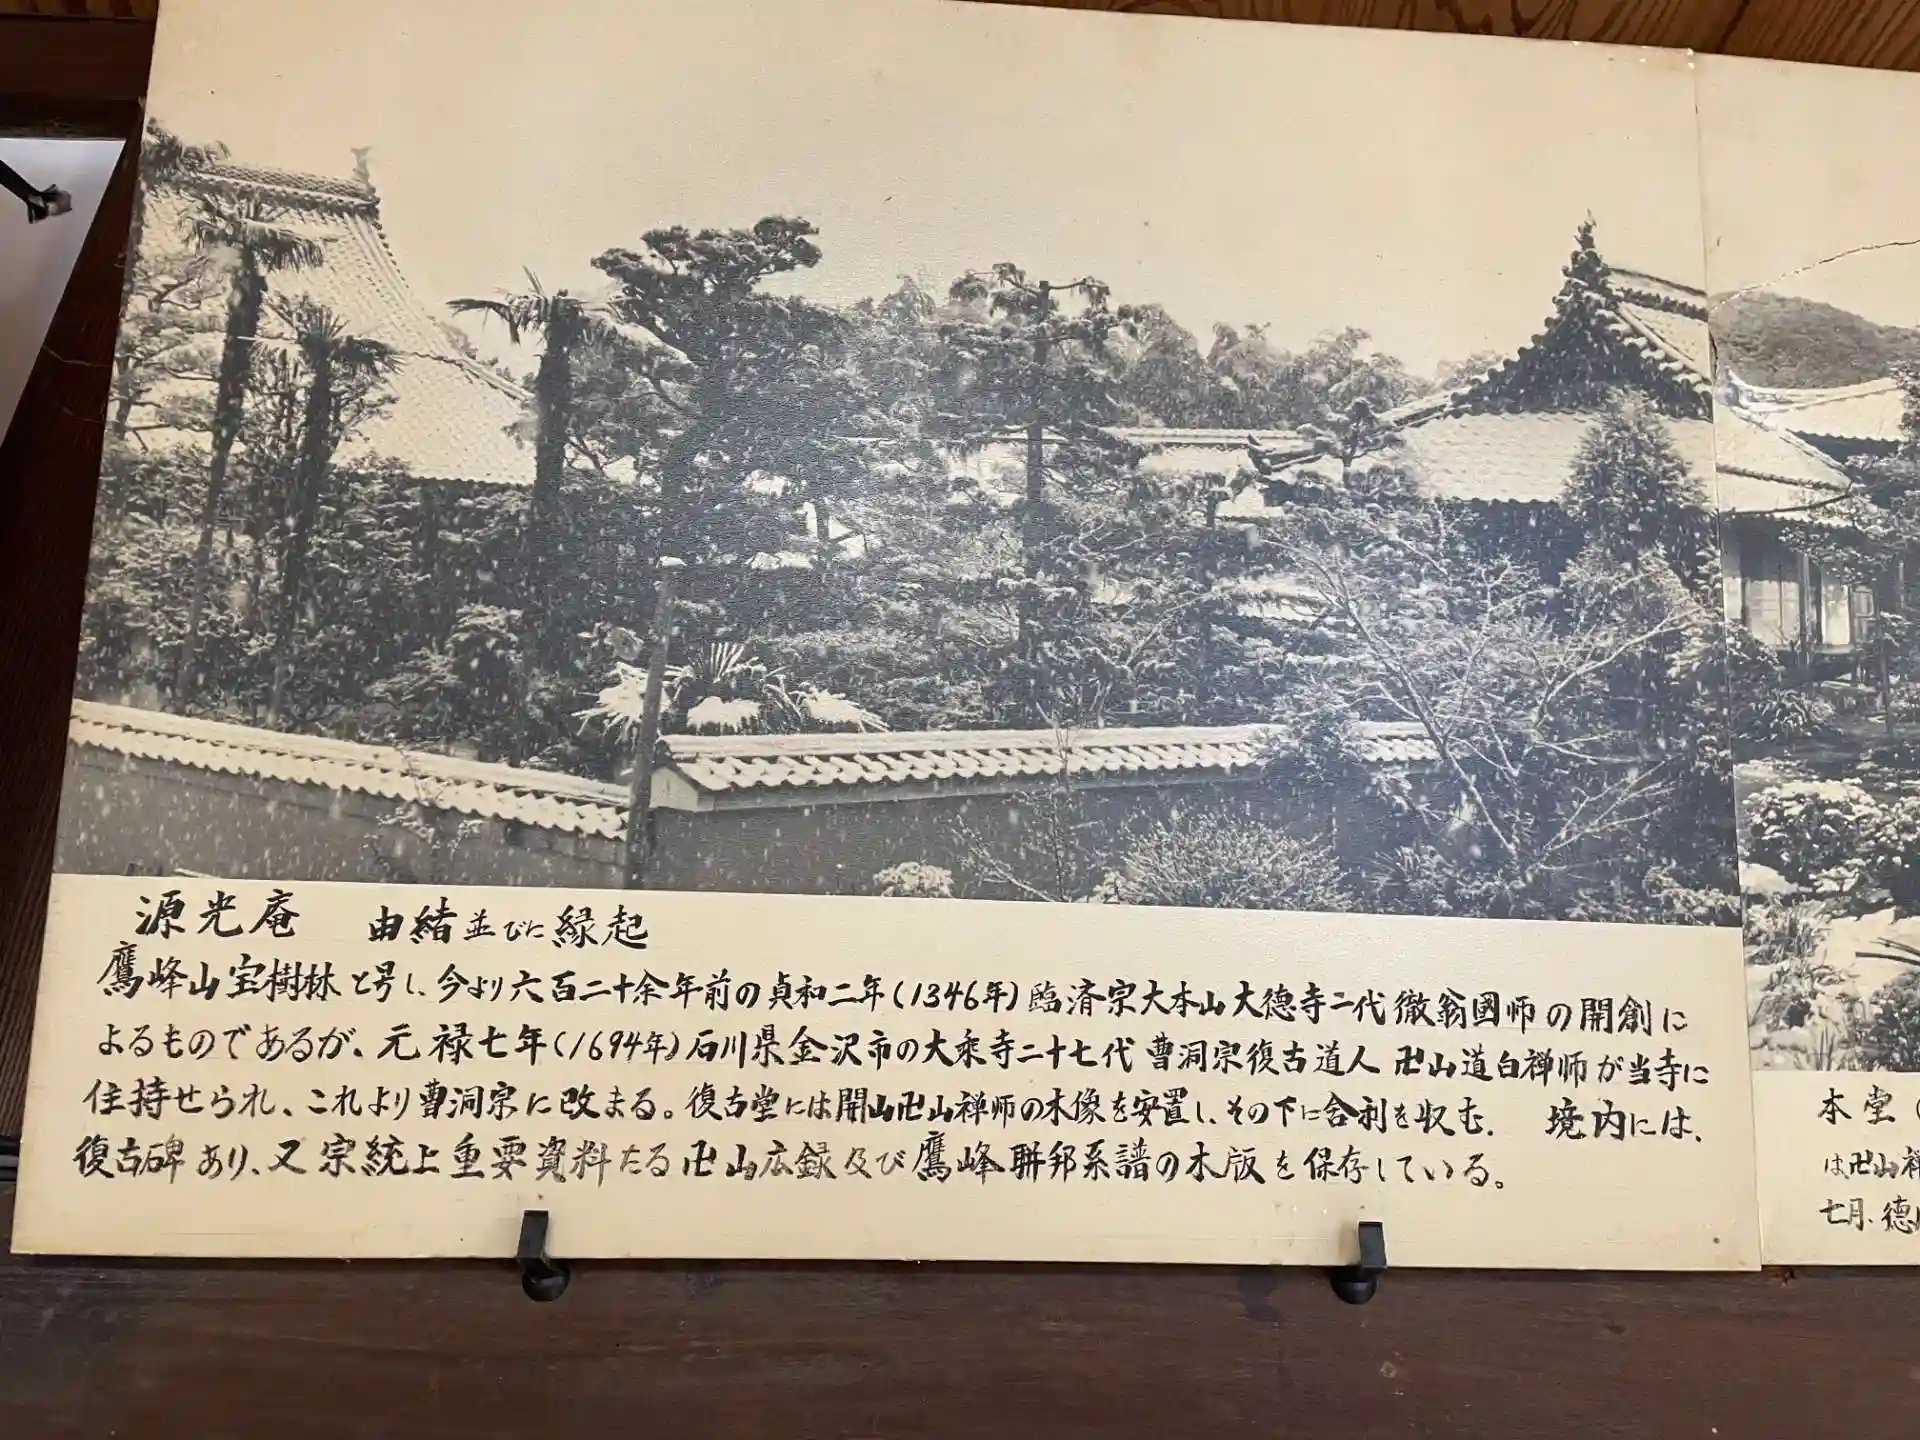 源光庵 由緒並びに縁起
鷹峰山宝樹林と号し、今より六百二十余年前の貞和二年(1346年)臨済宗大本山大徳寺二代徹翁國師の開創に
よるものであるが、元禄七年(1694年)石川県金沢市の大乘寺二十七代曹洞宗復古道人卍山道白禅師が当寺に
住持せられ、これより曹洞宗に改まる。復古堂には開山卍山禅師の木像を安置し、その下に舎利を収む. 境内には、
復古碑あり、又宗統上重要資料たる卍山広録及び鷹峰聯邦系譜の木版を保存している。
本堂(
は卍山禅
七月、徳